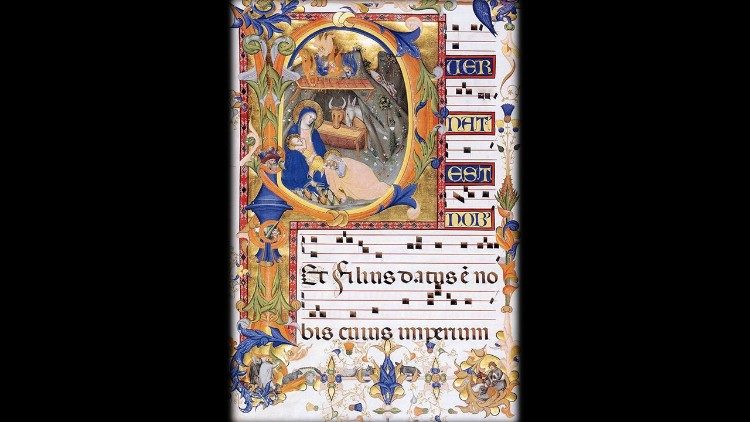 PUER
NAT
EST
NOB'
Et Filius datus ē no
bis cuius imperium